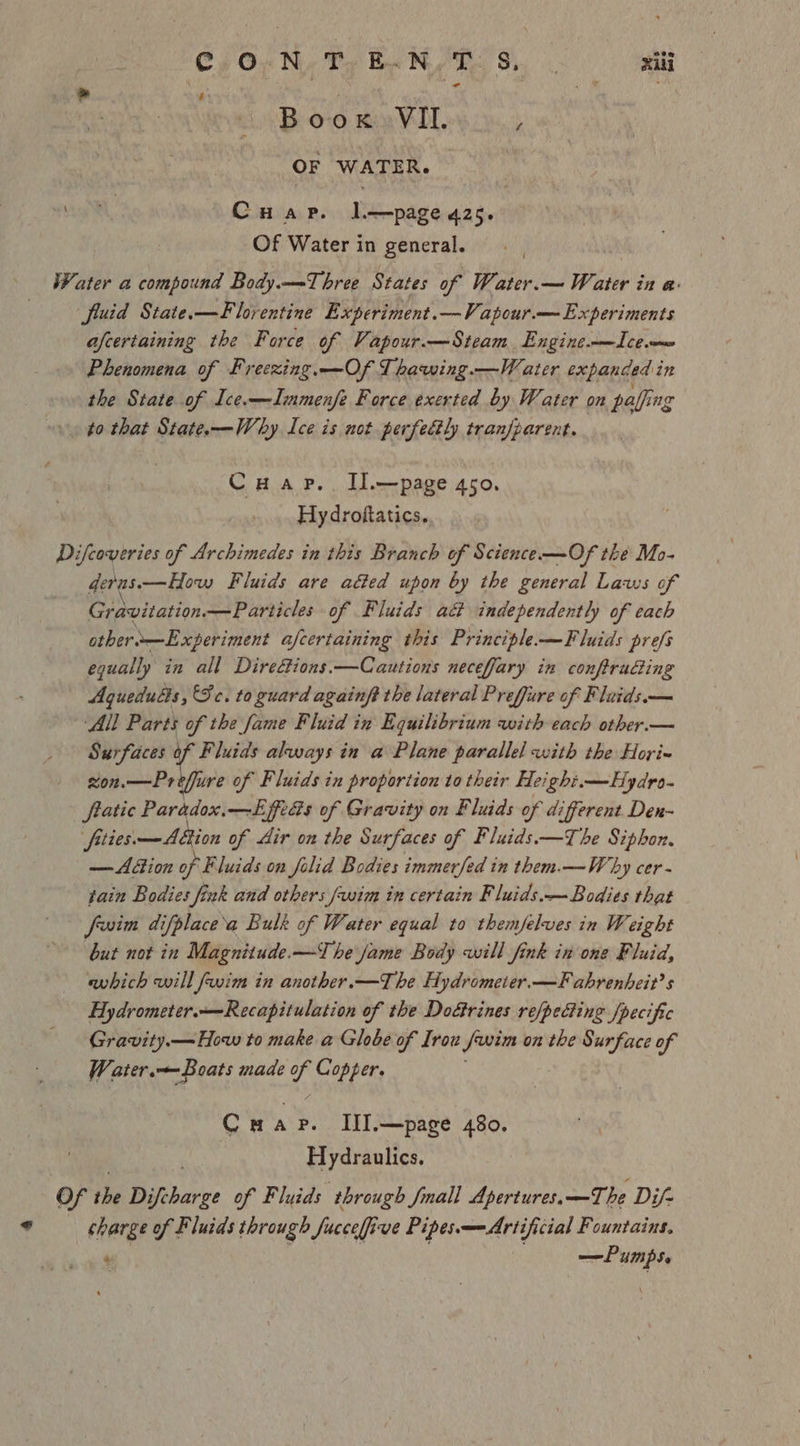 CONTENTS. xiii
Book VII.
OF WATER.
Chap. I.—page 425.
Of Water in general.
Water a compound Body.—Three States of Water.—Water in a
fluid State.—Florentine Experiment.—Vapour.—Experiments
aſcertaining the Force of Vapour.—Steam Engine.—Ice.—
Phenomena of Freezing.—Of Thawing.—Water expanded in
the State of Ice.—Immenſe Force exerted by Water on paſſing
to that State.—Why Ice is not perfectly tranſparent.
Chap. II.—page 450.
Hydroſtatics.
Diſcoveries of Archimedes in this Branch of Science.—Of the Mo-
derns.—How Fluids are acted upon by the general Laws of
Gravitation.—Particles of Fluids act independently of each
other.—Experiment aſcertaining this Principle.—Fluids preſs
equally in all Directions.—Cautions neceſſary in conſtructing
Aqueducts, &c. to guard againſt the lateral Preſſure of Fluids.—
All Parts of the ſame Fluid in Equilibrium with each other.—
Surfaces of Fluids always in a Plane parallel with the Hori-
zon.—Preſſure of Fluids in proportion to their Height.—Hydro-
ſtatic Paradox.—Effects of Gravity on Fluids of different Den-
ſities.—Action of Air on the Surfaces of Fluids.—The Siphon.
—Action of Fluids on ſolid Bodies immerſed in them.—Why cer-
tain Bodies ſink and others ſwim in certain Fluids.—Bodies that
ſwim diſplace a Bulk of Water equal to themſelves in Weight
but not in Magnitude.—The ſame Body will ſink in one Fluid,
which will ſwim in another.—The Hydrometer.—Fahrenheit's
Hydrometer.—Recapitulation of the Doctrines reſpecting ſpecific
Gravity.—How to make a Globe of Iron ſwim on the Surface of
Water.—Boats made of Copper.
Chap. III.—page 480.
Hydraulics.
Of the Diſcharge of Fluids through ſmall Apertures.—The Diſ-
charge of Fluids through ſucceſſive Pipes.—Artificial Fountains.
—Pumps.